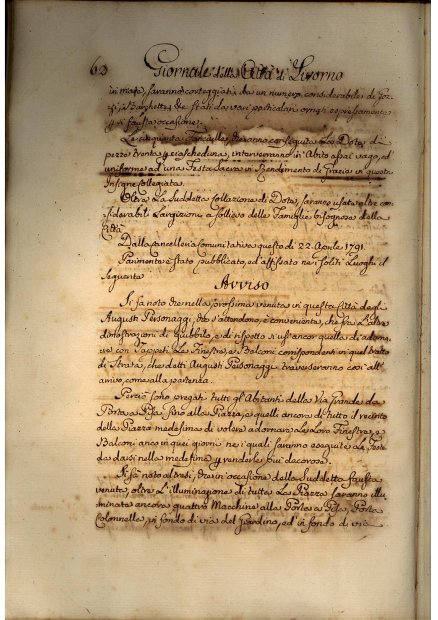 60 Giornale della Città di Livorno
in mare, saranno corteggiati da un numero considerabile di
e Barghette, che stati da varj particolari ornati espressamente
p. sì fausta occasione.
Le cinquanta Fanciulle, che anno conseguita La Dote di
pezze trenta p. ciascheduna, interveranno in Abito assai vago, ed
uniforme ad una Festa Sacra in Rendimento di Grazie in questa
Insigne Collegiata.
Oltre La Suddetta collazione di Dote, saranno usate altre con
siderabili Largizioni a sollievo delle Famiglie bisognose della
Città
Dalla Cancelleria Comunitativa questo dì 22. Aprile 1791.
Parimente è stato pubblicato, ed affissato ne i soliti Luoghi il
Seguente
Avviso
Si fa noto che nella prossima venuta in questa Città degl'
Augusti Personaggi, che s'attendono, è conveniente, che fra L'altre
dimostrazioni di giubbilo, e di rispetto vi sia ancor quella di adorna
re con Tappeti Le Finestre, e Balconi corrispondenti in quel tratto
di Strata, che detti Augusti Personaggi traverseranno così all'
arrivo, come alla partenza.
Perciò sono pregati tutti gl'Abitanti della Via Grande da
Porta a Pisa fino alla Piazza, e quelli ancora di tutto il recinto
della Piazza medesima di volere adornare Le Loro Finestre, e
Balconi anco in quei giorni ne i quali saranno eseguite Le Feste
da darsi nella medesima p. renderle più decorose.
Si fà noto altresì, che in occasione della Suddetta fausta
venuta, oltre L'illuminazione di tutta La Piazza saranno illu
minate ancora quattro Macchine alla Porta a Pisa, Porta
Colonnella, in fondo di via del Giardino, ed in fondo di via